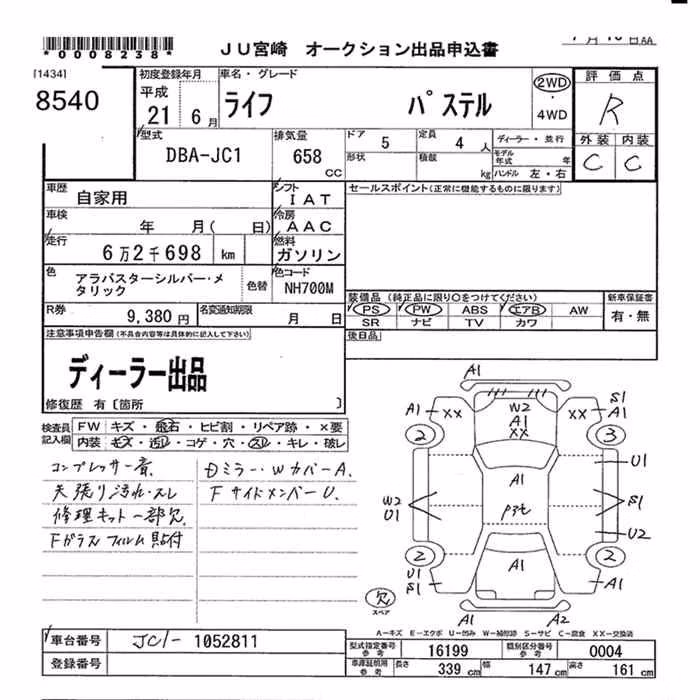 *0008238*
JU宮崎 オークション出品申込書
[1434]
8540
初度登録年月
平成
21 6月
車名・グレード
ライフ パステル
2WD・
4WD
評価点
R
型式
DBA-JC1
排気量
658
CC
ドア 5
定員 4 人
形状
積載 kg
ディーラー・並行
モデル年式 年
ハンドル 左・右
外装 内装
C C
車歴
自家用
シフト
IAT
セールスポイント(正常に機能するものに限ります)
車検
年 月( 日)
冷房
AAC
走行
6万2千698 km
燃料
ガソリン
色
アラバスターシルバー・メ
タリック
色替
色コード
NH700M
R券
9,380円
名変通知期限
月 日
装備品 (純正品に限り〇をつけてください)
PS PW ABS エアB AW
SR ナビ TV カワ
新車保証書
有・無
注意事項申告欄(不具合内容等は具体的に記入して下さい)
ディーラー出品
修復歴 有〔箇所 〕
後日品
検査員
記入欄
FW キズ・飛石・ヒビ割・リペア跡・×要
内装 キズ・汚レ・コゲ・穴・スレ・キレ・破レ
コンプレッサー音
天張り汚れ・スレ
修理キット一部欠
Fガラスフィルム貼付
Dミラー・WカバーA.
FサイドメンバーU.
A1
A1 XX
W2
A1
XX
XX S1
A1
2 3
A1
U1
W2
U1
S1
U2
2 2
U1
S1
A1
A1
A1 A2
欠
スペア
A-キズ E-エクボ U-凹み W-補修跡 S-サビ C-腐食 XX-交換済
車台番号 JC1- 1052811
登録番号
型式指定番号
参考
16199
類別区分番号
参考
0004
車庫証明用
参考
長さ 339 cm 幅 147 cm 高さ 161 cm